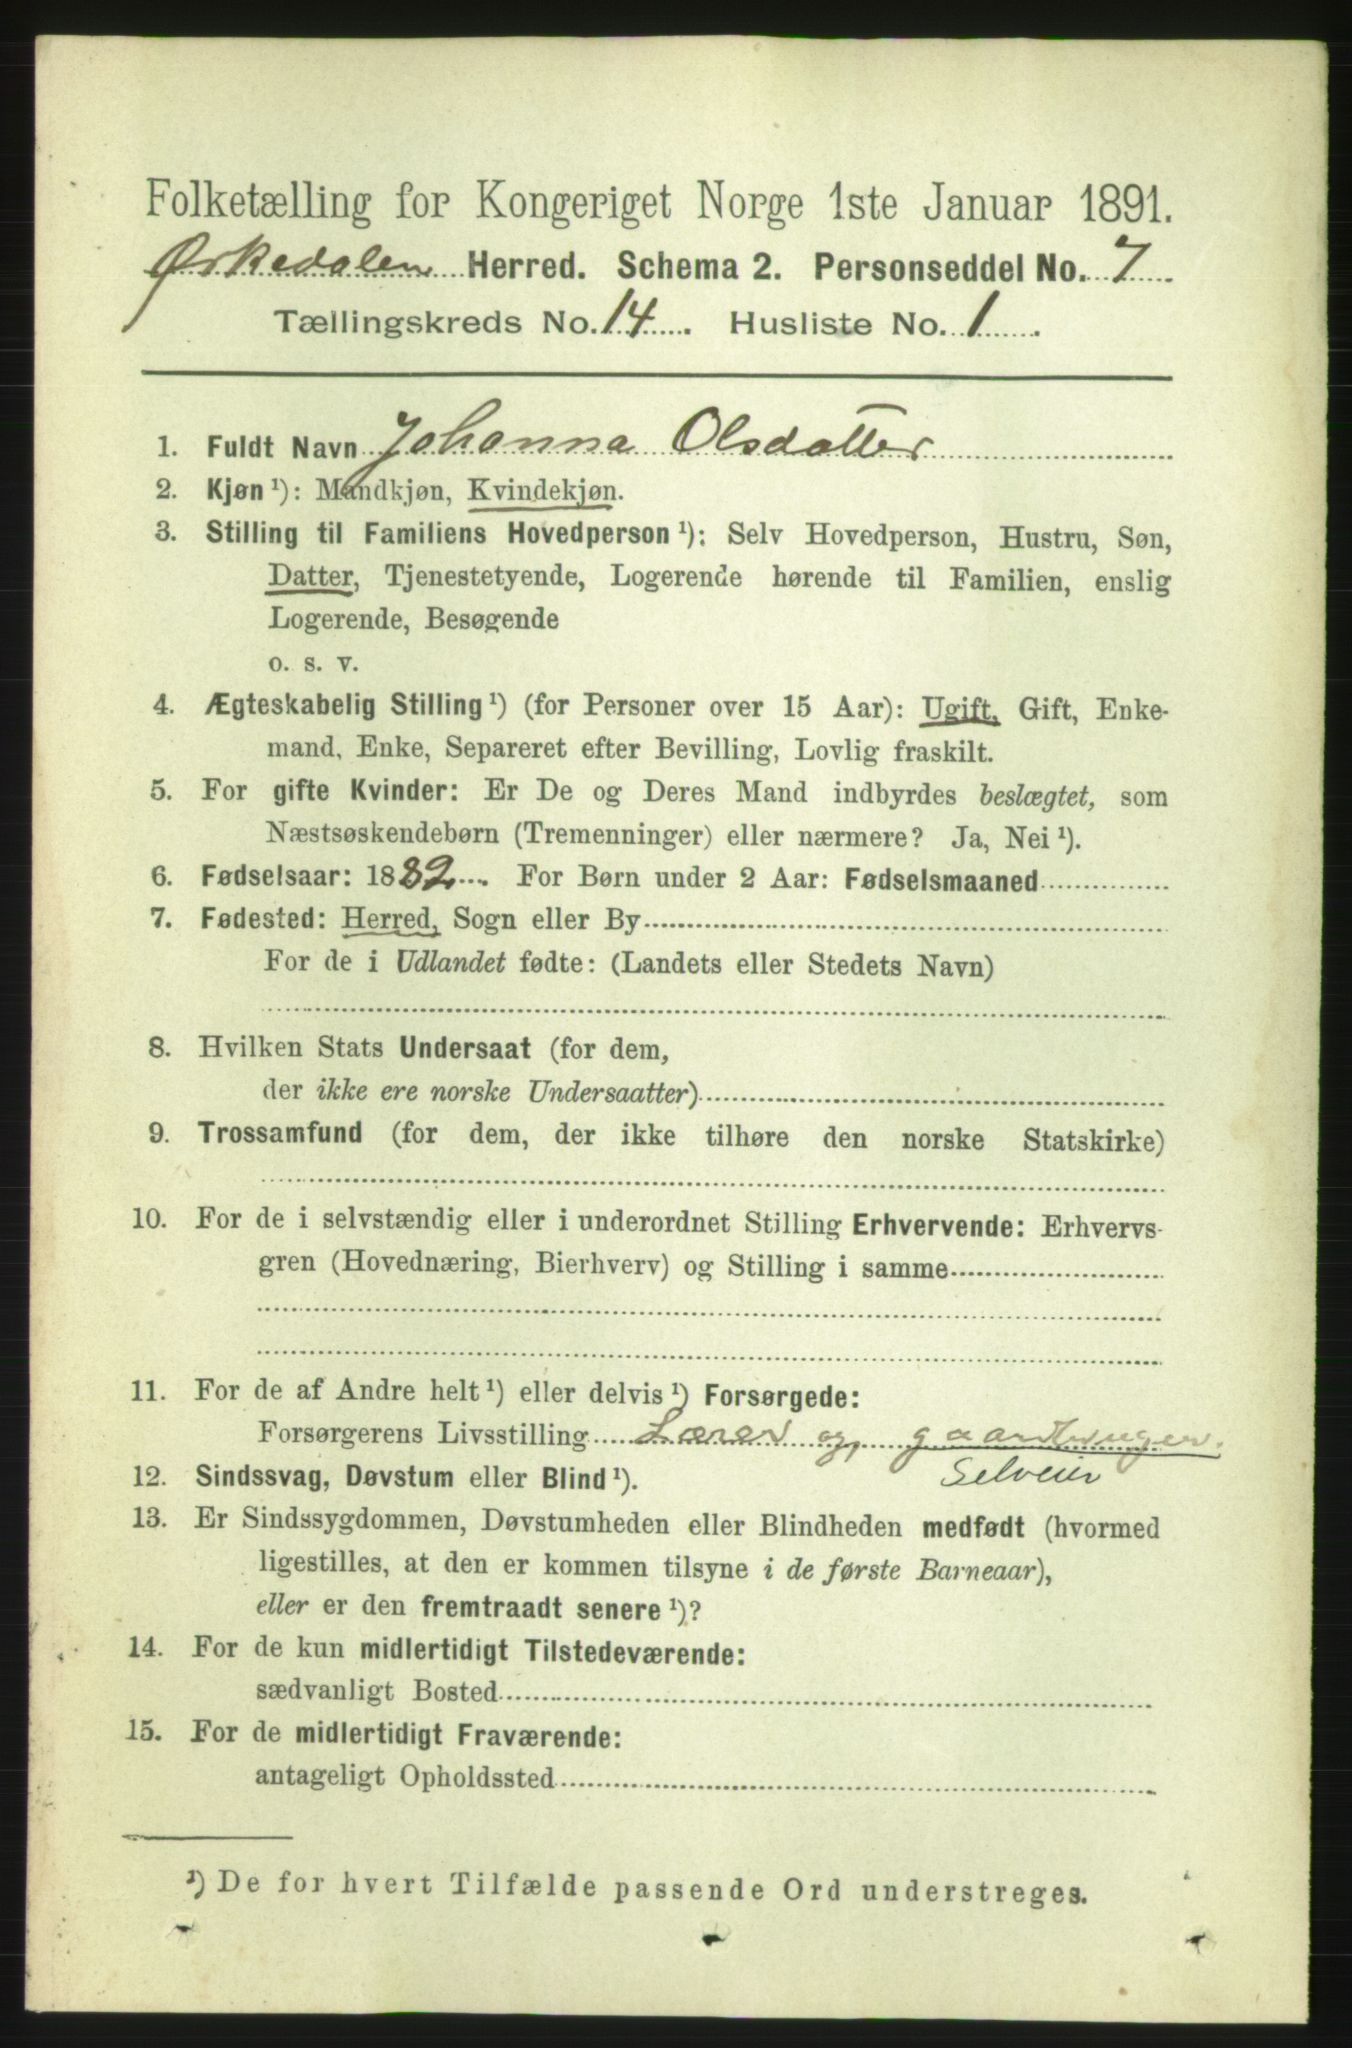 Folketælling for Kongeriget Norge 1ste Januar 1891.
Ørkedalen Herred. Schema 2. Personseddel No. 7
Tællingskreds No. 14. Husliste No. 1.
1. Fuldt Navn Johanna Olsdatter
2. Kjøn ¹): Mandkjøn, Kvindekjøn.
3. Stilling til Familiens Hovedperson ¹): Selv Hovedperson, Hustru, Søn,
Datter, Tjenestetyende, Logerende hørende til Familien, enslig
Logerende, Besøgende
o. s. v.
4. Ægteskabelig Stilling ¹) (for Personer over 15 Aar): Ugift, Gift, Enke-
mand, Enke, Separeret efter Bevilling, Lovlig fraskilt.
5. For gifte Kvinder: Er De og Deres Mand indbyrdes beslægtet, som
Næstsøskendebørn (Tremenninger) eller nærmere? Ja, Nei ¹).
6. Fødselsaar: 1882. For Børn under 2 Aar: Fødselsmaaned
7. Fødested: Herred, Sogn eller By
For de i Udlandet fødte: (Landets eller Stedets Navn)
8. Hvilken Stats Undersaat (for dem,
der ikke ere norske Undersaatter)
9. Trossamfund (for dem, der ikke tilhøre den norske Statskirke)
10. For de i selvstændig eller i underordnet Stilling Erhvervende: Erhvervs-
gren (Hovednæring, Bierhverv) og Stilling i samme
11. For de af Andre helt ¹) eller delvis ¹) Forsørgede:
Forsørgerens Livsstilling Lærer og gaardbruger.
Selveier
12. Sindssvag, Døvstum eller Blind ¹).
13. Er Sindssygdommen, Døvstumheden eller Blindheden medfødt (hvormed
ligestilles, at den er kommen tilsyne i de første Barneaar),
eller er den fremtraadt senere ¹)?
14. For de kun midlertidigt Tilstedeværende:
sædvanligt Bosted
15. For de midlertidigt Fraværende:
antageligt Opholdssted
¹) De for hvert Tilfælde passende Ord understreges.